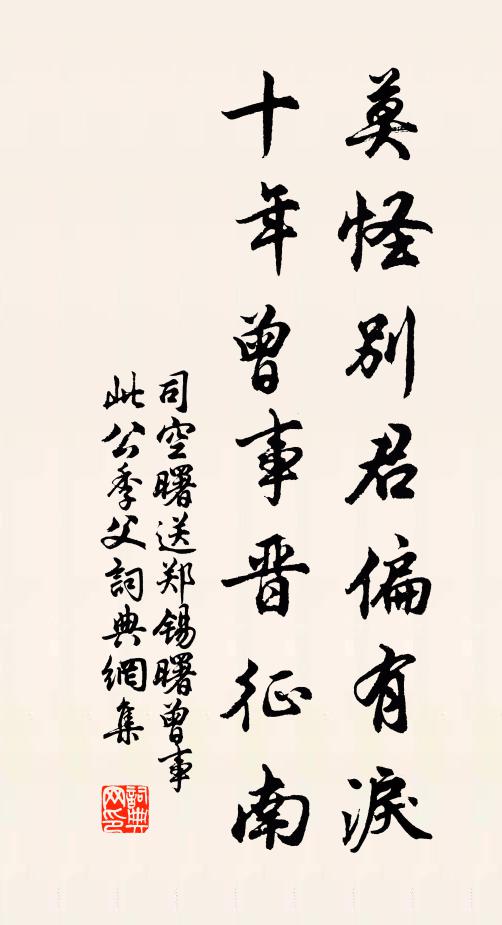 莫怪别君偏有淚
十年曾事晋征南
司空曙送郑锡曙曾事
此公季父詞典網集
詞典
网印